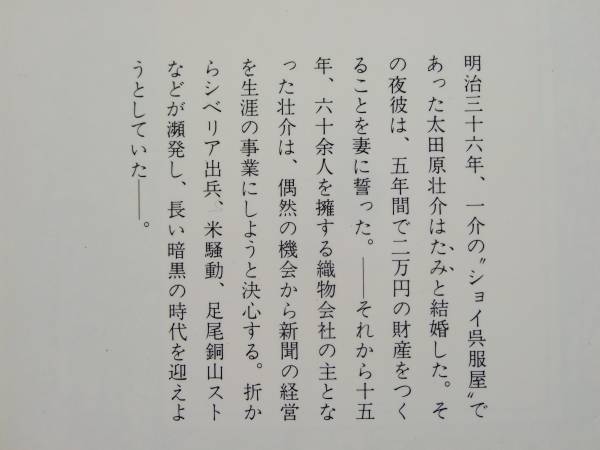 明治三十六年、一介の〝ショイ呉服屋〟で
あった太田原壮介はたみと結婚した。そ
の夜彼は、五年間で二万円の財産をつく
ることを妻に誓った。――それから十五
年、六十余人を擁する織物会社の主とな
った壮介は、偶然の機会から新聞の経営
を生涯の事業にしようと決心する。折か
らシベリア出兵、米騒動、足尾銅山スト
などが瀕発し、長い暗黒の時代を迎えよ
うとしていた――。